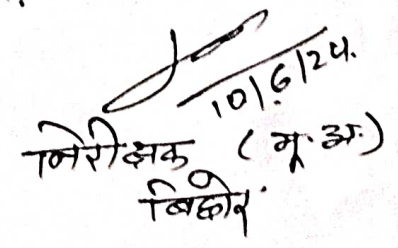 10/6/24.
निरीक्षक (भू.अ.)